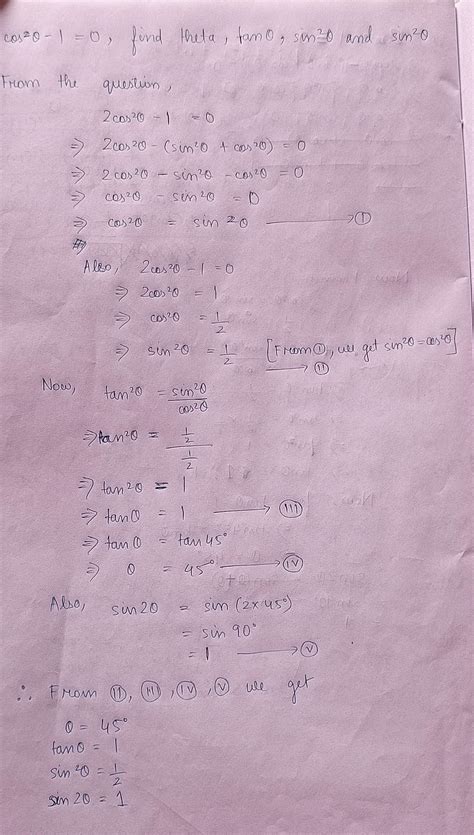 cos²θ - 1 = 0, find theta, tanθ, sin²θ and sin²θ
From the question,
2cos²θ - 1 = 0
⇒ 2cos²θ - (sin²θ + cos²θ) = 0
⇒ 2cos²θ - sin²θ - cos²θ = 0
⇒ cos²θ - sin²θ = 0
⇒ cos²θ = sin²θ ⟶ Ⓘ
Also, 2cos²θ - 1 = 0
⇒ 2cos²θ = 1
⇒ cos²θ = 1/2
⇒ sin²θ = 1/2 [From Ⓘ, we get sin²θ = cos²θ]
⟶ (II)
Now, tan²θ = sin²θ/cos²θ
⇒ tan²θ = (1/2)/(1/2)
⇒ tan²θ = 1
⇒ tanθ = 1 ⟶ (III)
⇒ tanθ = tan45°
⇒ θ = 45° ⟶ (IV)
Also, sin2θ = sin (2×45°)
= sin 90°
= 1 ⟶ (V)
∴ From (II), (III), (IV), (V) we get
θ = 45°
tanθ = 1
sin²θ = 1/2
sin 2θ = 1